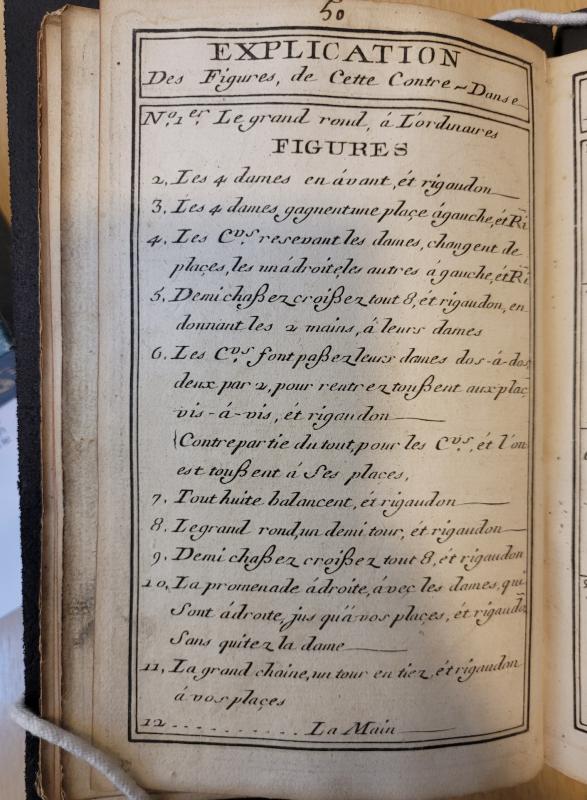 50
EXPLICATION
Des Figures, de Cette Contre-Danse
No. 1er. Le grand rond, á L'ordinaires
FIGURES
2, Les 4 dames en ávant, ét rigaudon
3, Les 4 dames, gagnent une plaçe ágauche, ét Ri
4, Les Cvs. resevant les dames, changent de
plaçes, les un ádroite, les autres á gauche, ét Ri
5, Demi chaßez croißez tout 8, ét rigaudon, en
donnant les 2 mains, á leurs dames
6, Les Cvs. font paßez leurs dames dos-á-dos,
deux par 2, pour rentrez toußent aux plaç
vis-á-vis, ét rigaudon
Contrepartie du tout, pour les Cvs., ét l'on
est toußent á Ses plaçes,
7, Tout huite balancent, ét rigaudon
8, Le grand rond, un demi tour, ét rigaudon
9, Demi chaßez croißez tout 8, ét rigaudon
10, La promenade ádroite, ávec les dames, qui
Sont ádroite, jus qu'á vos plaçes, ét rigaudō
Sans quitez la dame
11, La grand chaine, un tour en tiez, ét rigaudon
á vos plaçes
12 .......... La Main